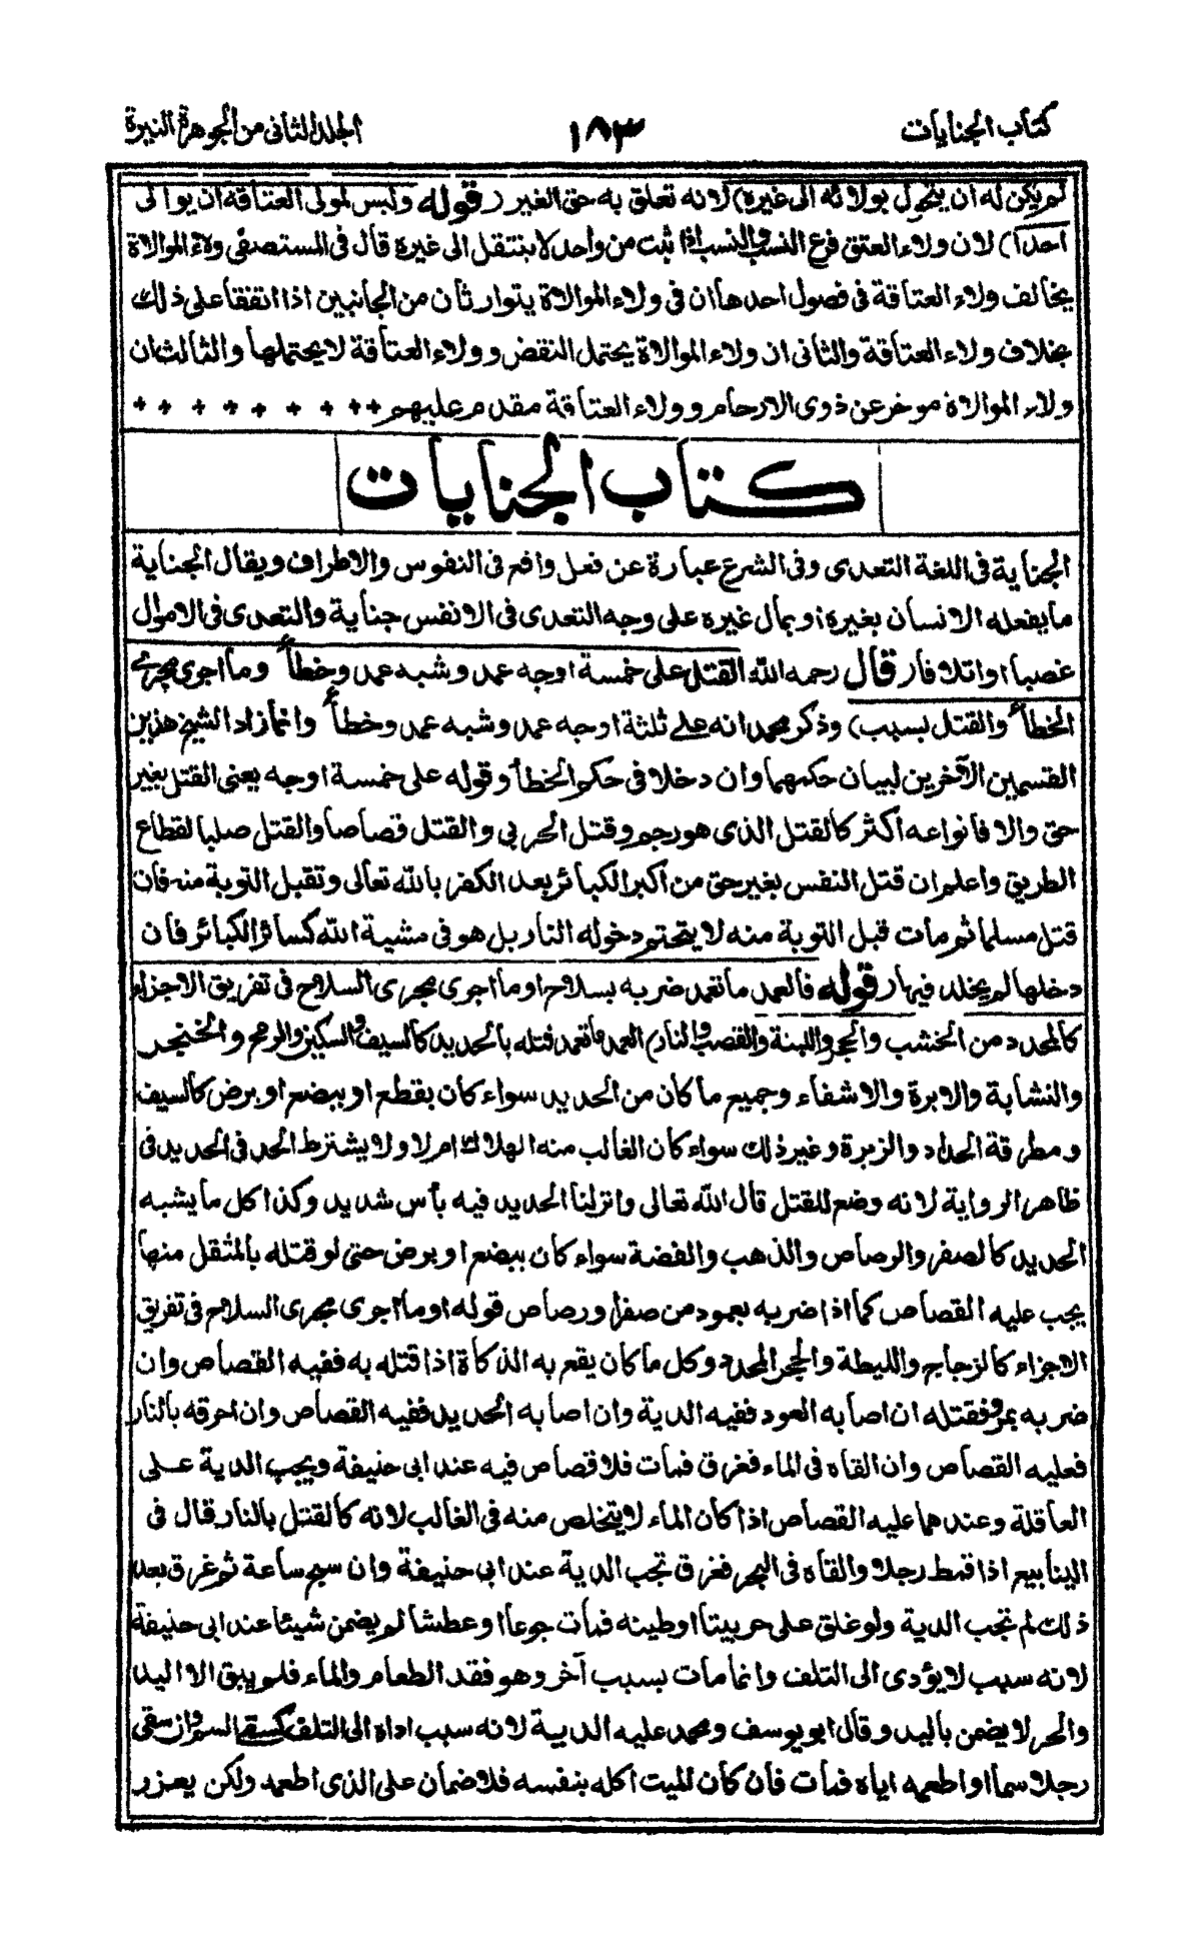 كتاب الجنايات
١٨٣
الجلد الثانى من الجوهرة النيرة
لم يكن له ان يتحول بولائه الى غيره) لانه تعلق به حق الغير (قوله وليس لمولى العتاقة ان يوالى
احدا) لان ولاء العتق فرع النسب والنسب اذا ثبت من واحد لا ينتقل الى غيره قال فى المستصفى ولاء الموالاة
يخالف ولاء العتاقة فى فصول احدها ان فى ولاء الموالاة يتوارثان من الجانبين اذا اتفقا على ذلك
بخلاف ولاء العتاقة والثانى ان ولاء الموالاة يحتمل النقض وولاء العتاقة لا يحتملها والثالث ان
ولاء الموالاة موخر عن ذوى الارحام وولاء العتاقة مقدم عليهم ++ + + + + + + +
كتاب الجنايات
الجناية فى اللغة التعدى وفى الشرع عبارة عن فعل واقع فى النفوس والاطراف ويقال الجناية
ما يفعله الانسان بغيره او بمال غيره على وجه التعدى فى الانفس جناية والتعدى فى الاموال
غصبا او اتلافا (قال رحمه الله القتل على خمسة اوجه عمد وشبه عمد وخطأ وما اجرى مجرى
الخطأ والقتل بسبب) وذكر محمد انه على ثلثة اوجه عمد وشبه عمد وخطأ وانما زاد الشيخ هذين
القسمين الآخرين لبيان حكمهما وان دخلا فى حكم الخطأ وقوله على خمسة اوجه يعنى القتل بغير
حق والا فانواعه اكثر كالقتل الذى هو رجم وقتل الحربى والقتل قصاصا والقتل صلبا لقطاع
الطريق واعلم ان قتل النفس بغير حق من اكبر الكبائر بعد الكفر بالله تعالى وتقبل التوبة منه فان
قتل مسلما ثم مات قبل التوبة منه لا يتحتم دخوله النار بل هو فى مشية الله كسائر الكبائر فان
دخلها لم يخلد فيها (قوله فالعمد ما تعمد ضربه بسلاح او ما اجرى مجرى السلاح فى تفريق الاجزاء
كالمحدد من الخشب والحجر واللبنة والقصب والنار) العمد ما تعمد قتله بالحديد كالسيف والسكين والرمح والخنجر
والنشابة والابرة والاشفاء وجميع ما كان من الحديد سواء كان يقطع او يبضع او يرض كالسيف
ومطرقة الحداد والزبرة وغير ذلك سواء كان الغالب منه الهلاك ام لا ولا يشترط الحد فى الحديد فى
ظاهر الرواية لانه وضع للقتل قال الله تعالى وانزلنا الحديد فيه بأس شديد وكذا كل ما يشبه
الحديد كالصفر والرصاص والذهب والفضة سواء كان يبضع او يرض حتى لو قتله بالمثقل منها
يجب عليه القصاص كما اذا ضربه بعمود من صفر او رصاص قوله او ما اجرى مجرى السلاح فى تفريق
الاجزاء كالزجاج والليطة والحجر المحدد وكل ما كان يقع به الذكاة اذا قتله به ففيه القصاص وان
ضربه بمر فقتله ان اصابه العود ففيه الدية وان اصابه الحديد ففيه القصاص وان احرقه بالنار
فعليه القصاص وان القاه فى الماء فغرق فمات فلا قصاص فيه عند ابى حنيفة ويجب الدية على
العاقلة وعندهما عليه القصاص اذا كان الماء لا يتخلص منه فى الغالب لانه كالقتل بالنار قال فى
الينابيع اذا قمط رجلا والقاه فى البحر فغرق تجب الدية عند ابى حنيفة وان سبح ساعة ثم غرق بعد
ذلك لم تجب الدية ولو غلق على حر بيتا او طينه فمات جوعا او عطشا لم يضمن شيئا عند ابى حنيفة
لانه سبب لا يؤدى الى التلف وانما مات بسبب آخر وهو فقد الطعام والماء فلم يبق الا اليد
والحر لا يضمن باليد وقال ابو يوسف ومحمد عليه الدية لانه سبب اداه الى التلف كسقى السم وان سقى
رجلا سما او اطعمه اياه فمات فان كان الميت اكله بنفسه فلا ضمان على الذى اطعمه ولكن يعزر